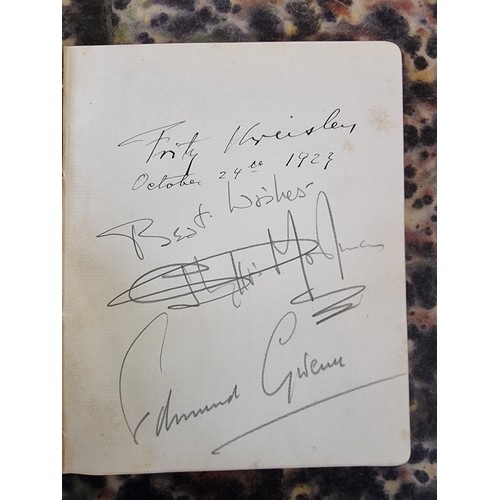 Fritz Kreisler
October 24th 1923
Best Wishes
Edmund Gwenn